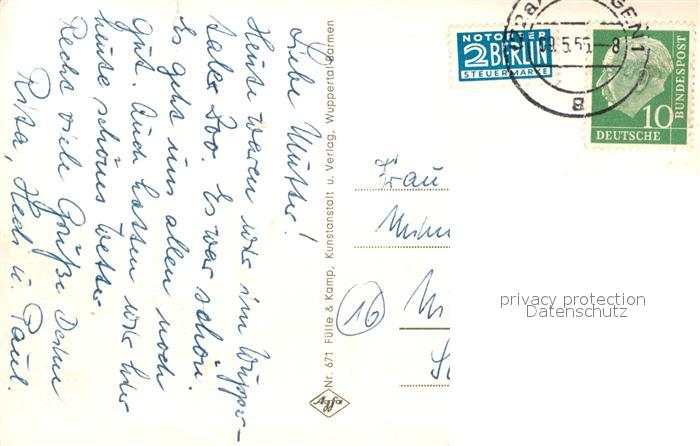 Liebe Mutter!
Heute waren wir im Wupper-
taler Zoo. Es war schön.
Es geht uns allen noch
gut. Auch hatten wir hier
heute schönes Wetter
Recht viele Grüße Deine
Rita, Hedi u. Paul.
Nr. 671 Fülle & Kamp, Kunstanstalt u. Verlag, Wuppertal-Barmen
Agfa
NOTOPFER
2 BERLIN
STEUERMARKE
10
DEUTSCHE
BUNDESPOST
Frau
16
privacy protection
Datenschutz